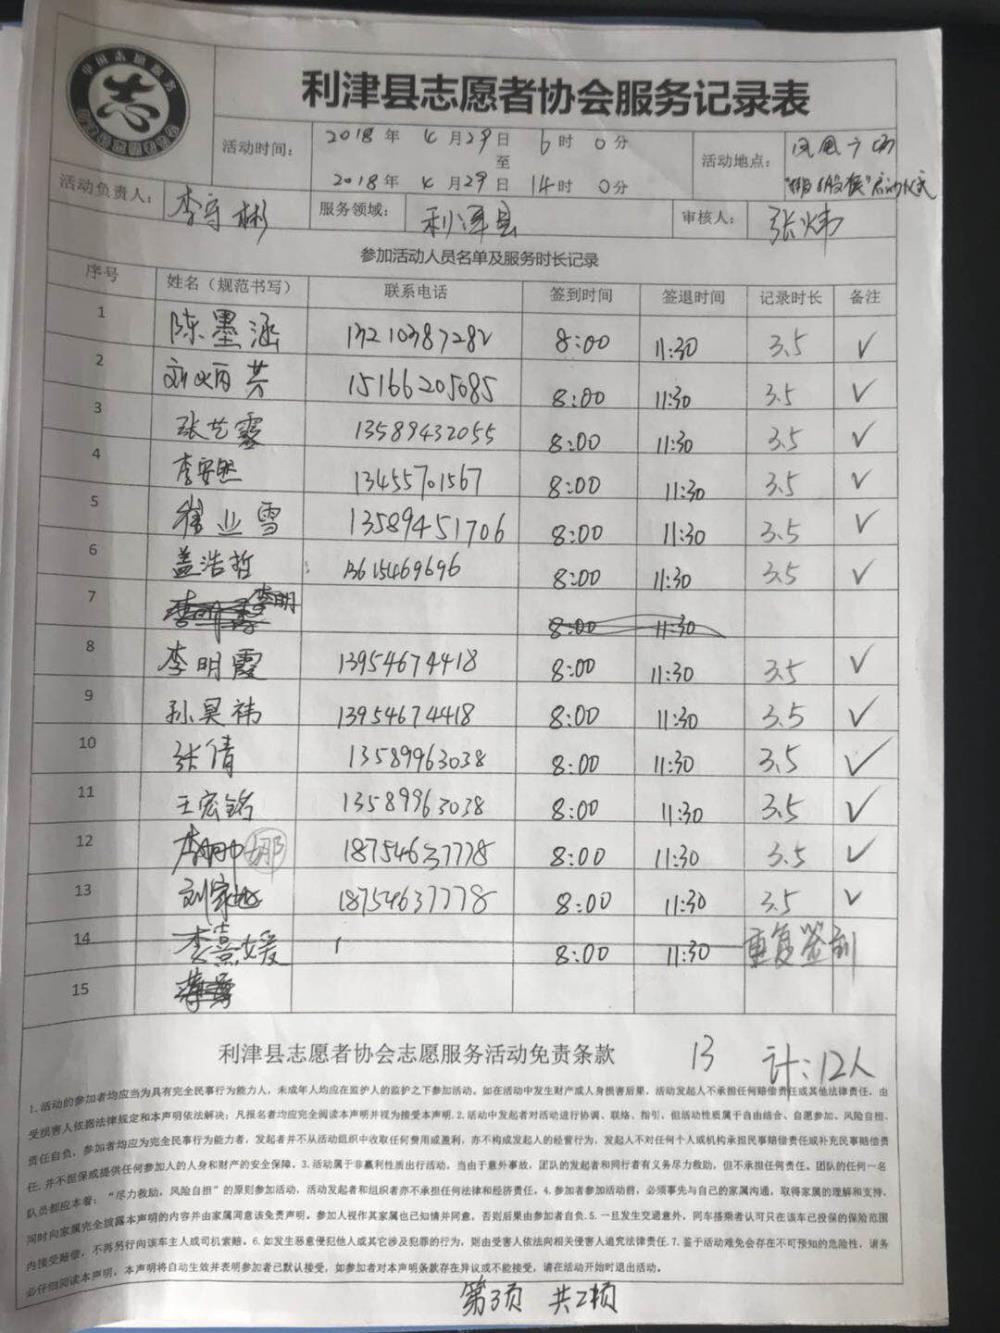 利津县志愿者协会服务记录表
活动时间： 2018年 4月29日 6时 0分
至
2018年 4月29日 14时 0分
活动地点： 凤凰广场
启动仪式
活动负责人： 李守彬 服务领域： 利津县 审核人： 张炜
参加活动人员名单及服务时长记录
序号 姓名（规范书写） 联系电话 签到时间 签退时间 记录时长 备注
1 陈墨涵 13210387282 8:00 11:30 3.5 √
2 刘炳芳 15166205685 8:00 11:30 3.5 √
3 张艺露 13589432055 8:00 11:30 3.5 √
4 李安然 13455701567 8:00 11:30 3.5 √
5 崔业雪 13589451706 8:00 11:30 3.5 √
6 盖浩哲 13615469696 8:00 11:30 3.5 √
7 李明 8:00 11:30
8 李明霞 13954674418 8:00 11:30 3.5 √
9 孙昊祎 13954674418 8:00 11:30 3.5 √
10 张倩 13589963038 8:00 11:30 3.5 √
11 王宏铭 13589963038 8:00 11:30 3.5 √
12 李娜 18754637778 8:00 11:30 3.5 √
13 刘家旭 18754637778 8:00 11:30 3.5 √
14 李熹媛 8:00 11:30 重复签到
15
利津县志愿者协会志愿服务活动免责条款 13 计：12人
1.活动的参加者均应当为具有完全民事行为能力人，未成年人均应在监护人的监护之下参加活动。如在活动中发生财产或人身损害后果，活动发起人不承担任何赔偿责任或其他法律责任，由
受损害人依据法律规定和本声明依法解决；凡报名者均应完全阅读本声明并视为接受本声明.2.活动中发起者对活动进行协调、联络、指引，但活动性质属于自由结合、自愿参加、风险自担、
责任自负，参加者均应为完全民事行为能力者，发起者并不从活动组织中收取任何费用或盈利，亦不构成发起人的经营行为，发起人不对任何个人或机构承担民事赔偿责任或补充民事赔偿责
任.并不担保或提供任何参加人的人身和财产的安全保障。3.活动属于非赢利性质出行活动，当由于意外事故，团队的发起者和同行者有义务尽力救助，但不承担任何责任。团队的任何一名
队员都应本着：“尽力救助，风险自担”的原则参加活动，活动发起者和组织者亦不承担任何法律和经济责任。4.参加者参加活动前，必须事先与自己的家属沟通，取得家属的理解和支持，
同时向家属完全披露本声明的内容并由家属同意该免责声明。参加人视作其家属也已知情并同意，否则后果由参加者自负.5.一旦发生交通意外，同车搭乘者认可只在该车已投保的保险范围
内接受赔偿，不再另行向该车主人或司机索赔。6.如发生恶意侵犯他人或其它涉及犯罪的行为，则由受害人依法向相关侵害人追究法律责任.7.鉴于活动难免会存在不可预知的危险性，请务
必仔细阅读本声明，本声明将自动生效并表明参加者已默认接受，如参加者对本声明条款存在异议或不能接受，请在活动开始时退出活动。
第3页 共2页